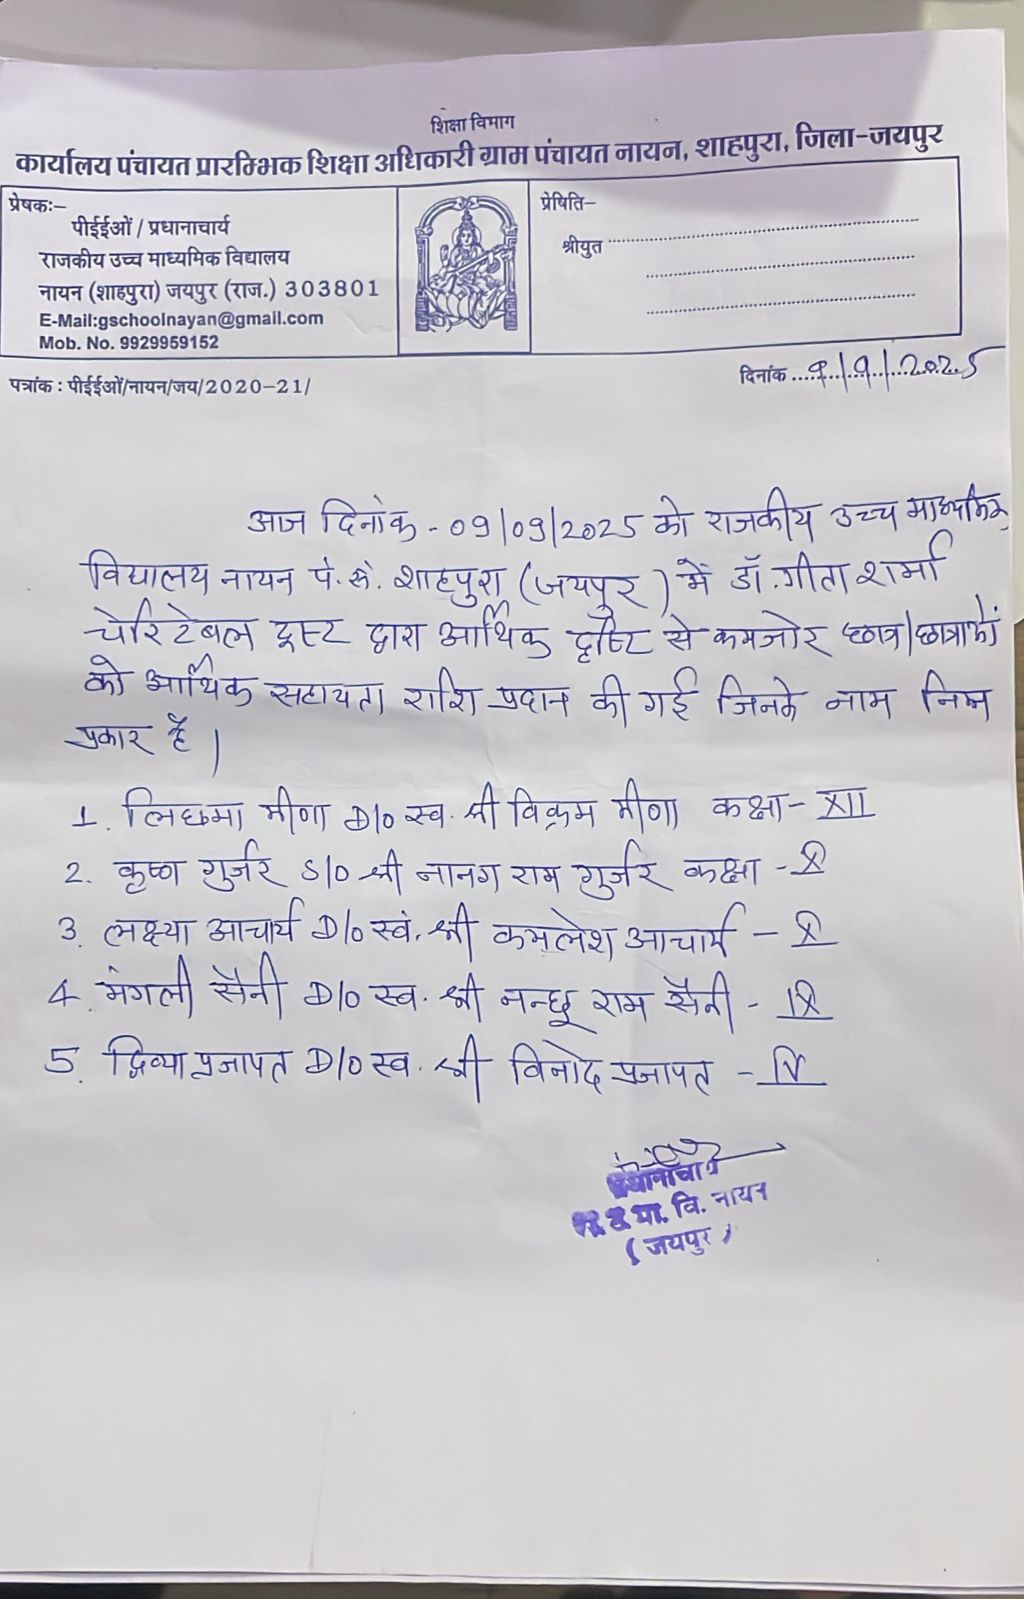 शिक्षा विभाग
कार्यालय पंचायत प्रारम्भिक शिक्षा अधिकारी ग्राम पंचायत नायन, शाहपुरा, जिला-जयपुर
प्रेषकः-
पीईईओं / प्रधानाचार्य
राजकीय उच्च माध्यमिक विद्यालय
नायन (शाहपुरा) जयपुर (राज.) 303801
E-Mail:gschoolnayan@gmail.com
Mob. No. 9929959152
प्रेषिति-
श्रीयुत
पत्रांक : पीईईओं/नायन/जय/2020-21/
दिनांक 9/9/2025
आज दिनांक - 09/09/2025 को राजकीय उच्च माध्यमिक
विद्यालय नायन पं. स. शाहपुरा (जयपुर) में डॉ. गीता शर्मा
चेरिटेबल ट्रस्ट द्वारा आर्थिक दृष्टि से कमजोर छात्र/छात्राओं
को आर्थिक सहायता राशि प्रदान की गई जिनके नाम निम्न
प्रकार है |
1. लिछमा मीणा D/o स्व. श्री विक्रम मीणा कक्षा- XII
2. कृष्ण गुर्जर S/o श्री नानग राम गुर्जर कक्षा - X
3. लक्ष्या आचार्य D/o स्वं. श्री कमलेश आचार्य - X
4. मंगली सैनी D/o स्व. श्री नन्छू राम सैनी - IX
5. दिव्या प्रजापत D/o स्व. श्री विनोद प्रजापत - IV
प्रधानाचार्य
रा. उ. मा. वि. नायन
(जयपुर)